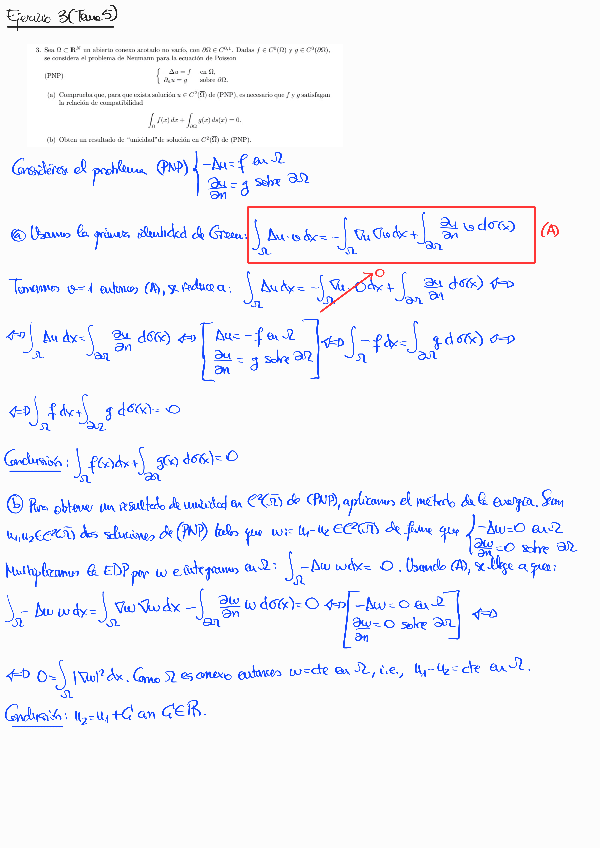 Ejercicio 3 (Tema 5)
3. Sea Ω ⊂ R^N un abierto conexo acotado no vacío, con ∂Ω ∈ C^{0,1}. Dadas f ∈ C^0(Ω) y g ∈ C^0(∂Ω),
se considera el problema de Neumann para la ecuación de Poisson
(PNP) { -Δu = f en Ω,
∂_n u = g sobre ∂Ω.
(a) Compruebe que, para que exista solución u ∈ C^2(Ω̄) de (PNP), es necesario que f y g satisfagan
la relación de compatibilidad
∫_Ω f(x) dx + ∫_∂Ω g(x) ds(x) = 0.
(b) Obten un resultado de "unicidad" de solución en C^2(Ω̄) de (PNP).
Consideremos el problema (PNP) { -Δu = f en Ω
∂u/∂n = g sobre ∂Ω
(a) Usamos la primera identidad de Green: ∫_Ω Δu·v dx = -∫_Ω ∇u ∇v dx + ∫_∂Ω ∂u/∂n v dσ(x) (A)
Tomamos v=1 entonces (A), se reduce a: ∫_Ω Δu dx = -∫_Ω ∇u · 0 dx + ∫_∂Ω ∂u/∂n dσ(x) ⇔
0
⇔ ∫_Ω Δu dx = ∫_∂Ω ∂u/∂n dσ(x) ⇔ [ Δu = -f en Ω
∂u/∂n = g sobre ∂Ω ] ⇔ ∫_Ω -f dx = ∫_∂Ω g dσ(x) ⇔
⇔ ∫_Ω f dx + ∫_∂Ω g dσ(x) = 0
Conclusión: ∫_Ω f(x) dx + ∫_∂Ω g(x) dσ(x) = 0
(b) Para obtener un resultado de unicidad en C²(Ω̄) de (PNP), aplicamos el método de la energía. Sean
u₁,u₂ ∈ C²(Ω̄) dos soluciones de (PNP) tales que w := u₁-u₂ ∈ C²(Ω̄) de forma que { -Δw=0 en Ω
∂w/∂n = 0 sobre ∂Ω
Multiplicamos la EDP por w e integramos en Ω: ∫_Ω -Δw w dx = 0. Usando (A), se llega a que:
∫_Ω -Δw w dx = ∫_Ω ∇w ∇w dx - ∫_∂Ω ∂w/∂n w dσ(x) = 0 ⇔ [ -Δw = 0 en Ω
∂w/∂n = 0 sobre ∂Ω ] ⇔
⇔ 0 = ∫_Ω |∇w|² dx. Como Ω es conexo entonces w=cte en Ω, i.e., u₁-u₂ = cte en Ω.
Conclusión: u₂ = u₁ + C con C ∈ ℝ.